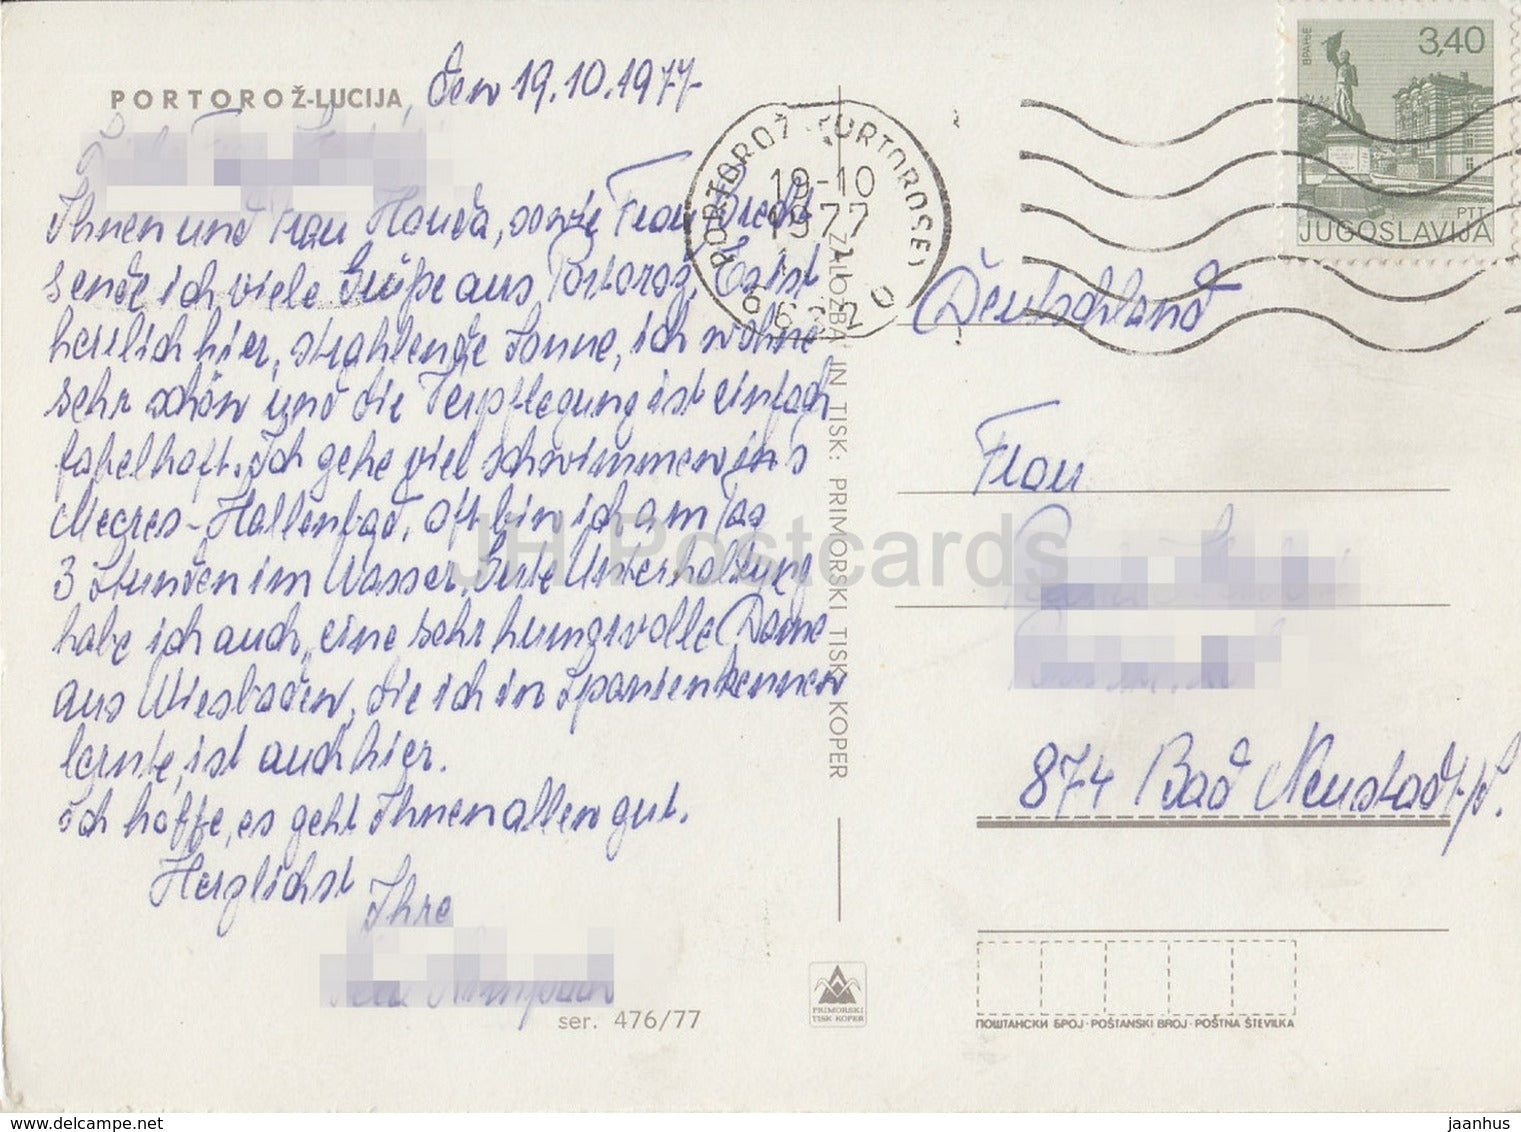 PORTOROŽ-LUCIJA, den 19.10.1977
Ihnen und Frau Hauda, sowie Frau
sende ich viele Grüße aus Portorož. Es ist
herrlich hier, strahlende Sonne, ich wohne
sehr schön und die Verpflegung ist einfach
fabelhaft. Ich gehe viel schwimmen ins
Meeres-Hallenbad, oft bin ich am Tag
3 Stunden im Wasser. Gute Unterhaltung
habe ich auch, eine sehr humorvolle Dame
aus Wiesbaden, die ich in Spanien kennen
lernte, ist auch hier.
Ich hoffe, es geht Ihnen allen gut.
Herzlichst
Ihre
ser. 476/77
ZALOŽBA IN TISK: PRIMORSKI TISK KOPER
PRIMORSKI
TISK KOPER
PORTOROŽ PORTOROSE
19-10
1977
ВРАЊЕ
3,40
PTT
JUGOSLAVIJA
Deutschland
Frau
874 Bad Neustadt/S.
ПОШТАНСКИ БРОЈ · POŠTANSKI BROJ · POŠTNA ŠTEVILKA
JH Postcards
www.delcampe.net
jaanhus